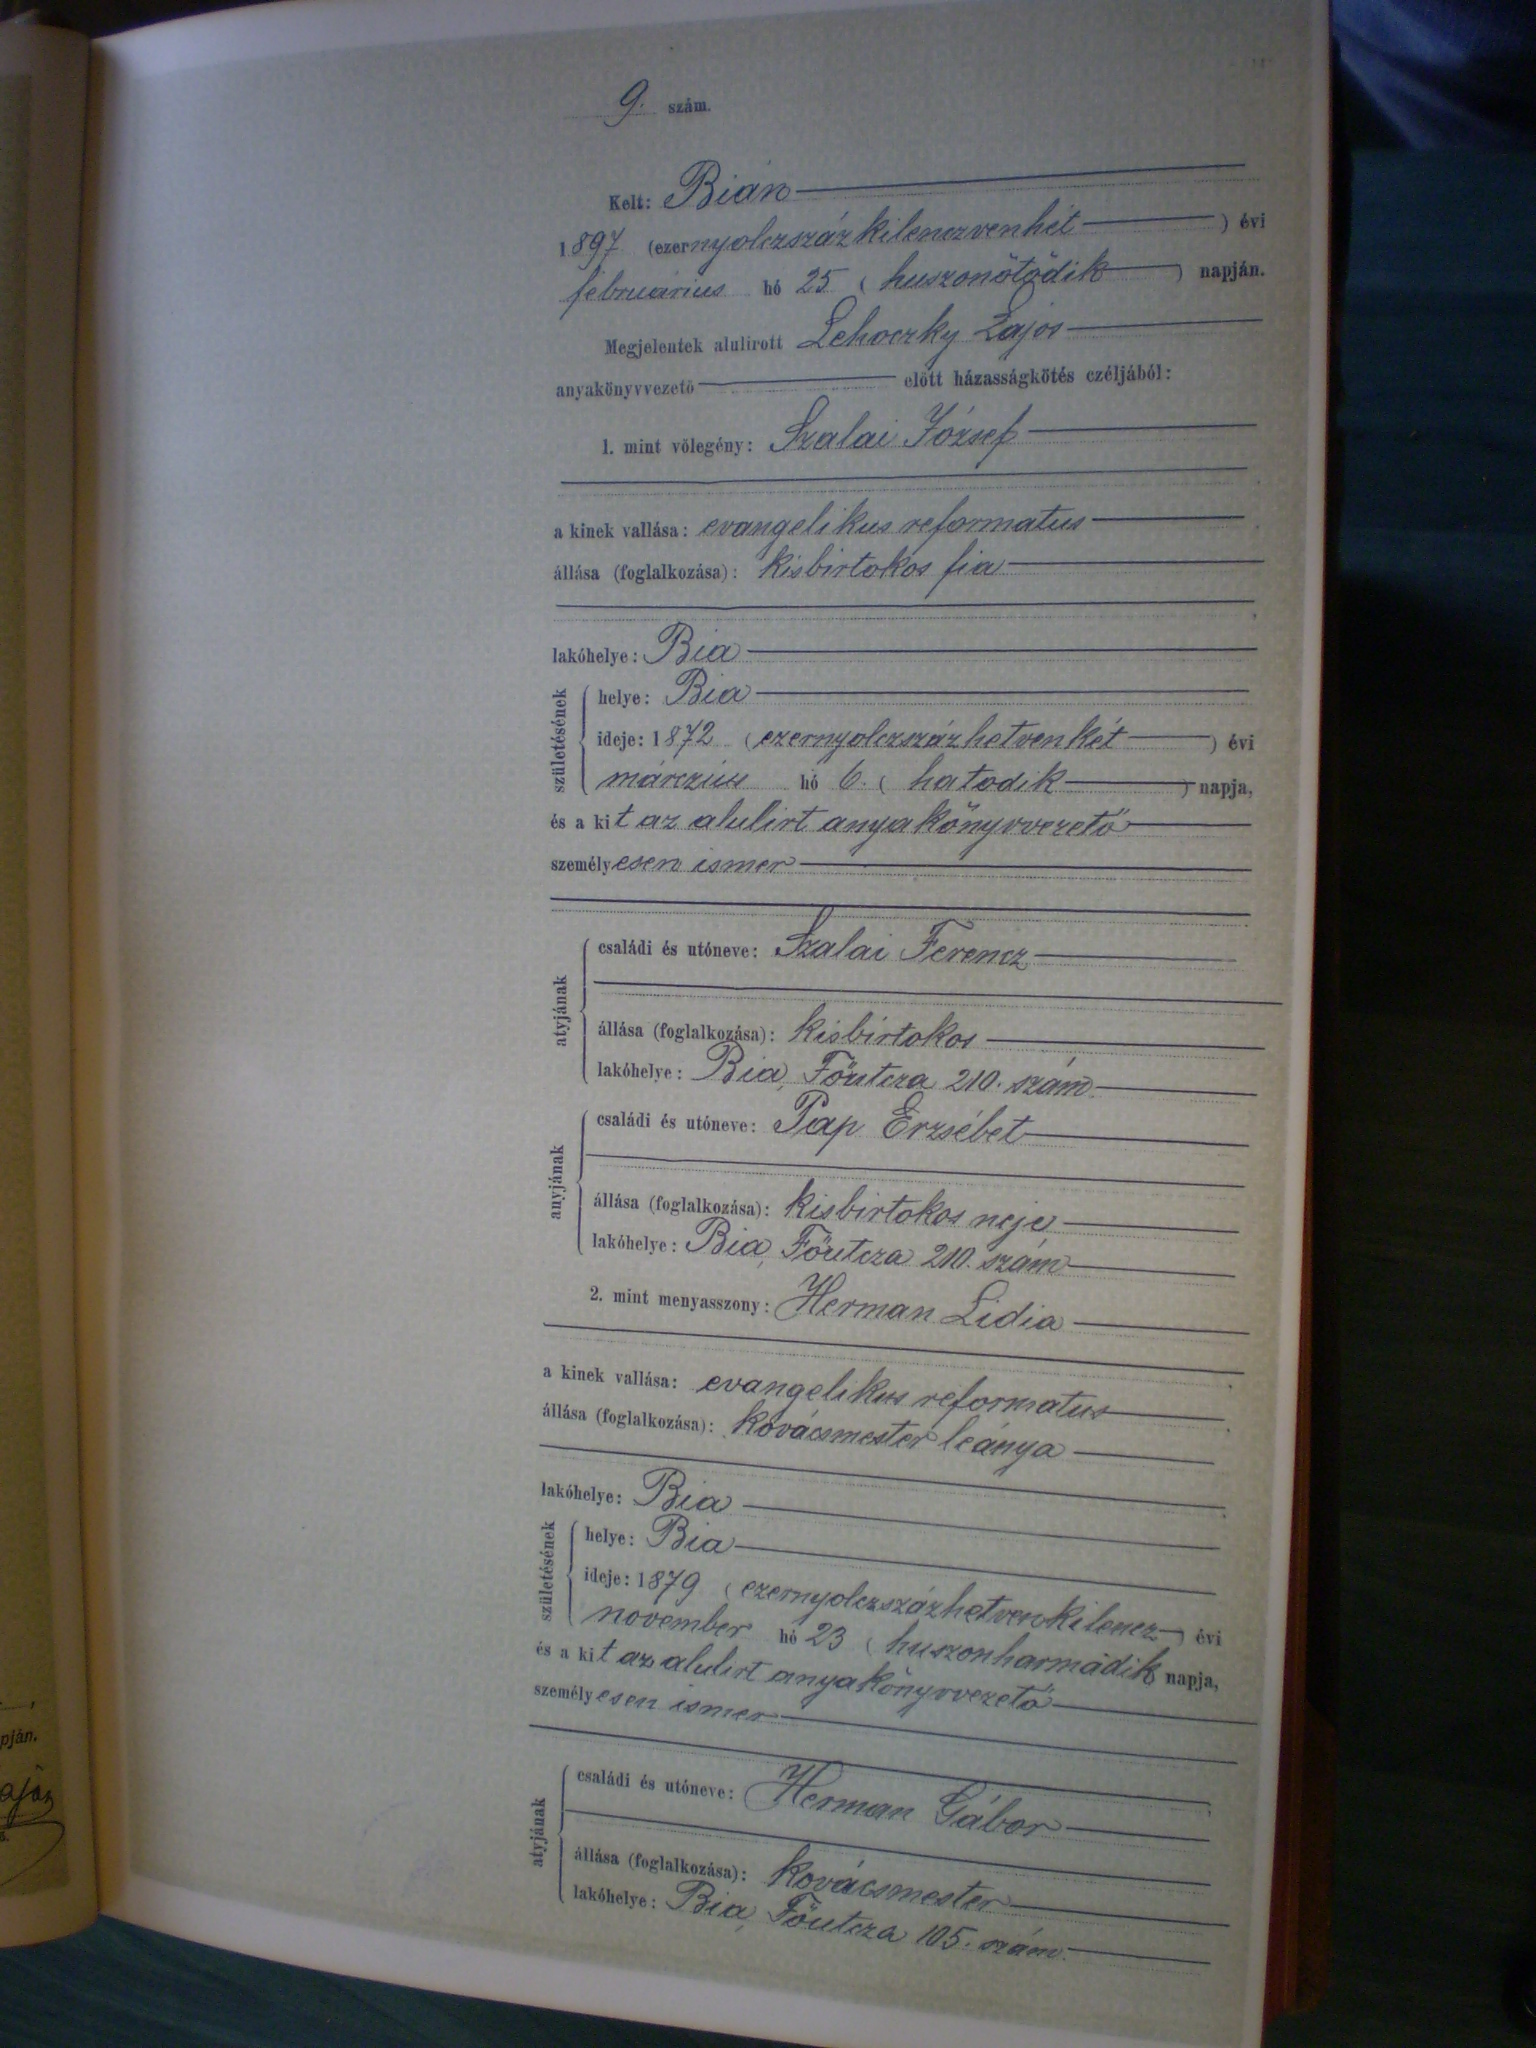 9. szám.
Kelt: Bián
1897 (ezernyolczszázkilenczvenhét) évi
februárius hó 25 (huszonötödik) napján.
Megjelentek alulirott Lehoczky Lajos
anyakönyvvezető előtt házasságkötés czéljából:
1. mint vőlegény: Szalai József
a kinek vallása: evangelikus reformatus
állása (foglalkozása): kisbirtokos fia
lakóhelye: Bia
születésének
helye: Bia
ideje: 1872 (ezernyolczszázhetvenkét) évi
márczius hó 6. (hatodik) napja,
és a kit az alulirt anyakönyvvezető
személyesen ismer
atyjának
családi és utóneve: Szalai Ferencz
állása (foglalkozása): kisbirtokos
lakóhelye: Bia, Főutcza 210. szám.
anyjának
családi és utóneve: Pap Erzsébet
állása (foglalkozása): kisbirtokos neje
lakóhelye: Bia, Főutcza 210. szám
2. mint menyasszony: Herman Lidia
a kinek vallása: evangelikus reformatus
állása (foglalkozása): kovácsmester leánya
lakóhelye: Bia
születésének
helye: Bia
ideje: 1879 (ezernyolczszázhetvenkilencz) évi
november hó 23 (huszonharmadik napja,
és a kit az alulirt anyakönyvvezető
személyesen ismer
atyjának
családi és utóneve: Herman Gábor
állása (foglalkozása): kovácsmester
lakóhelye: Bia, Főutcza 105. szám.
pján.